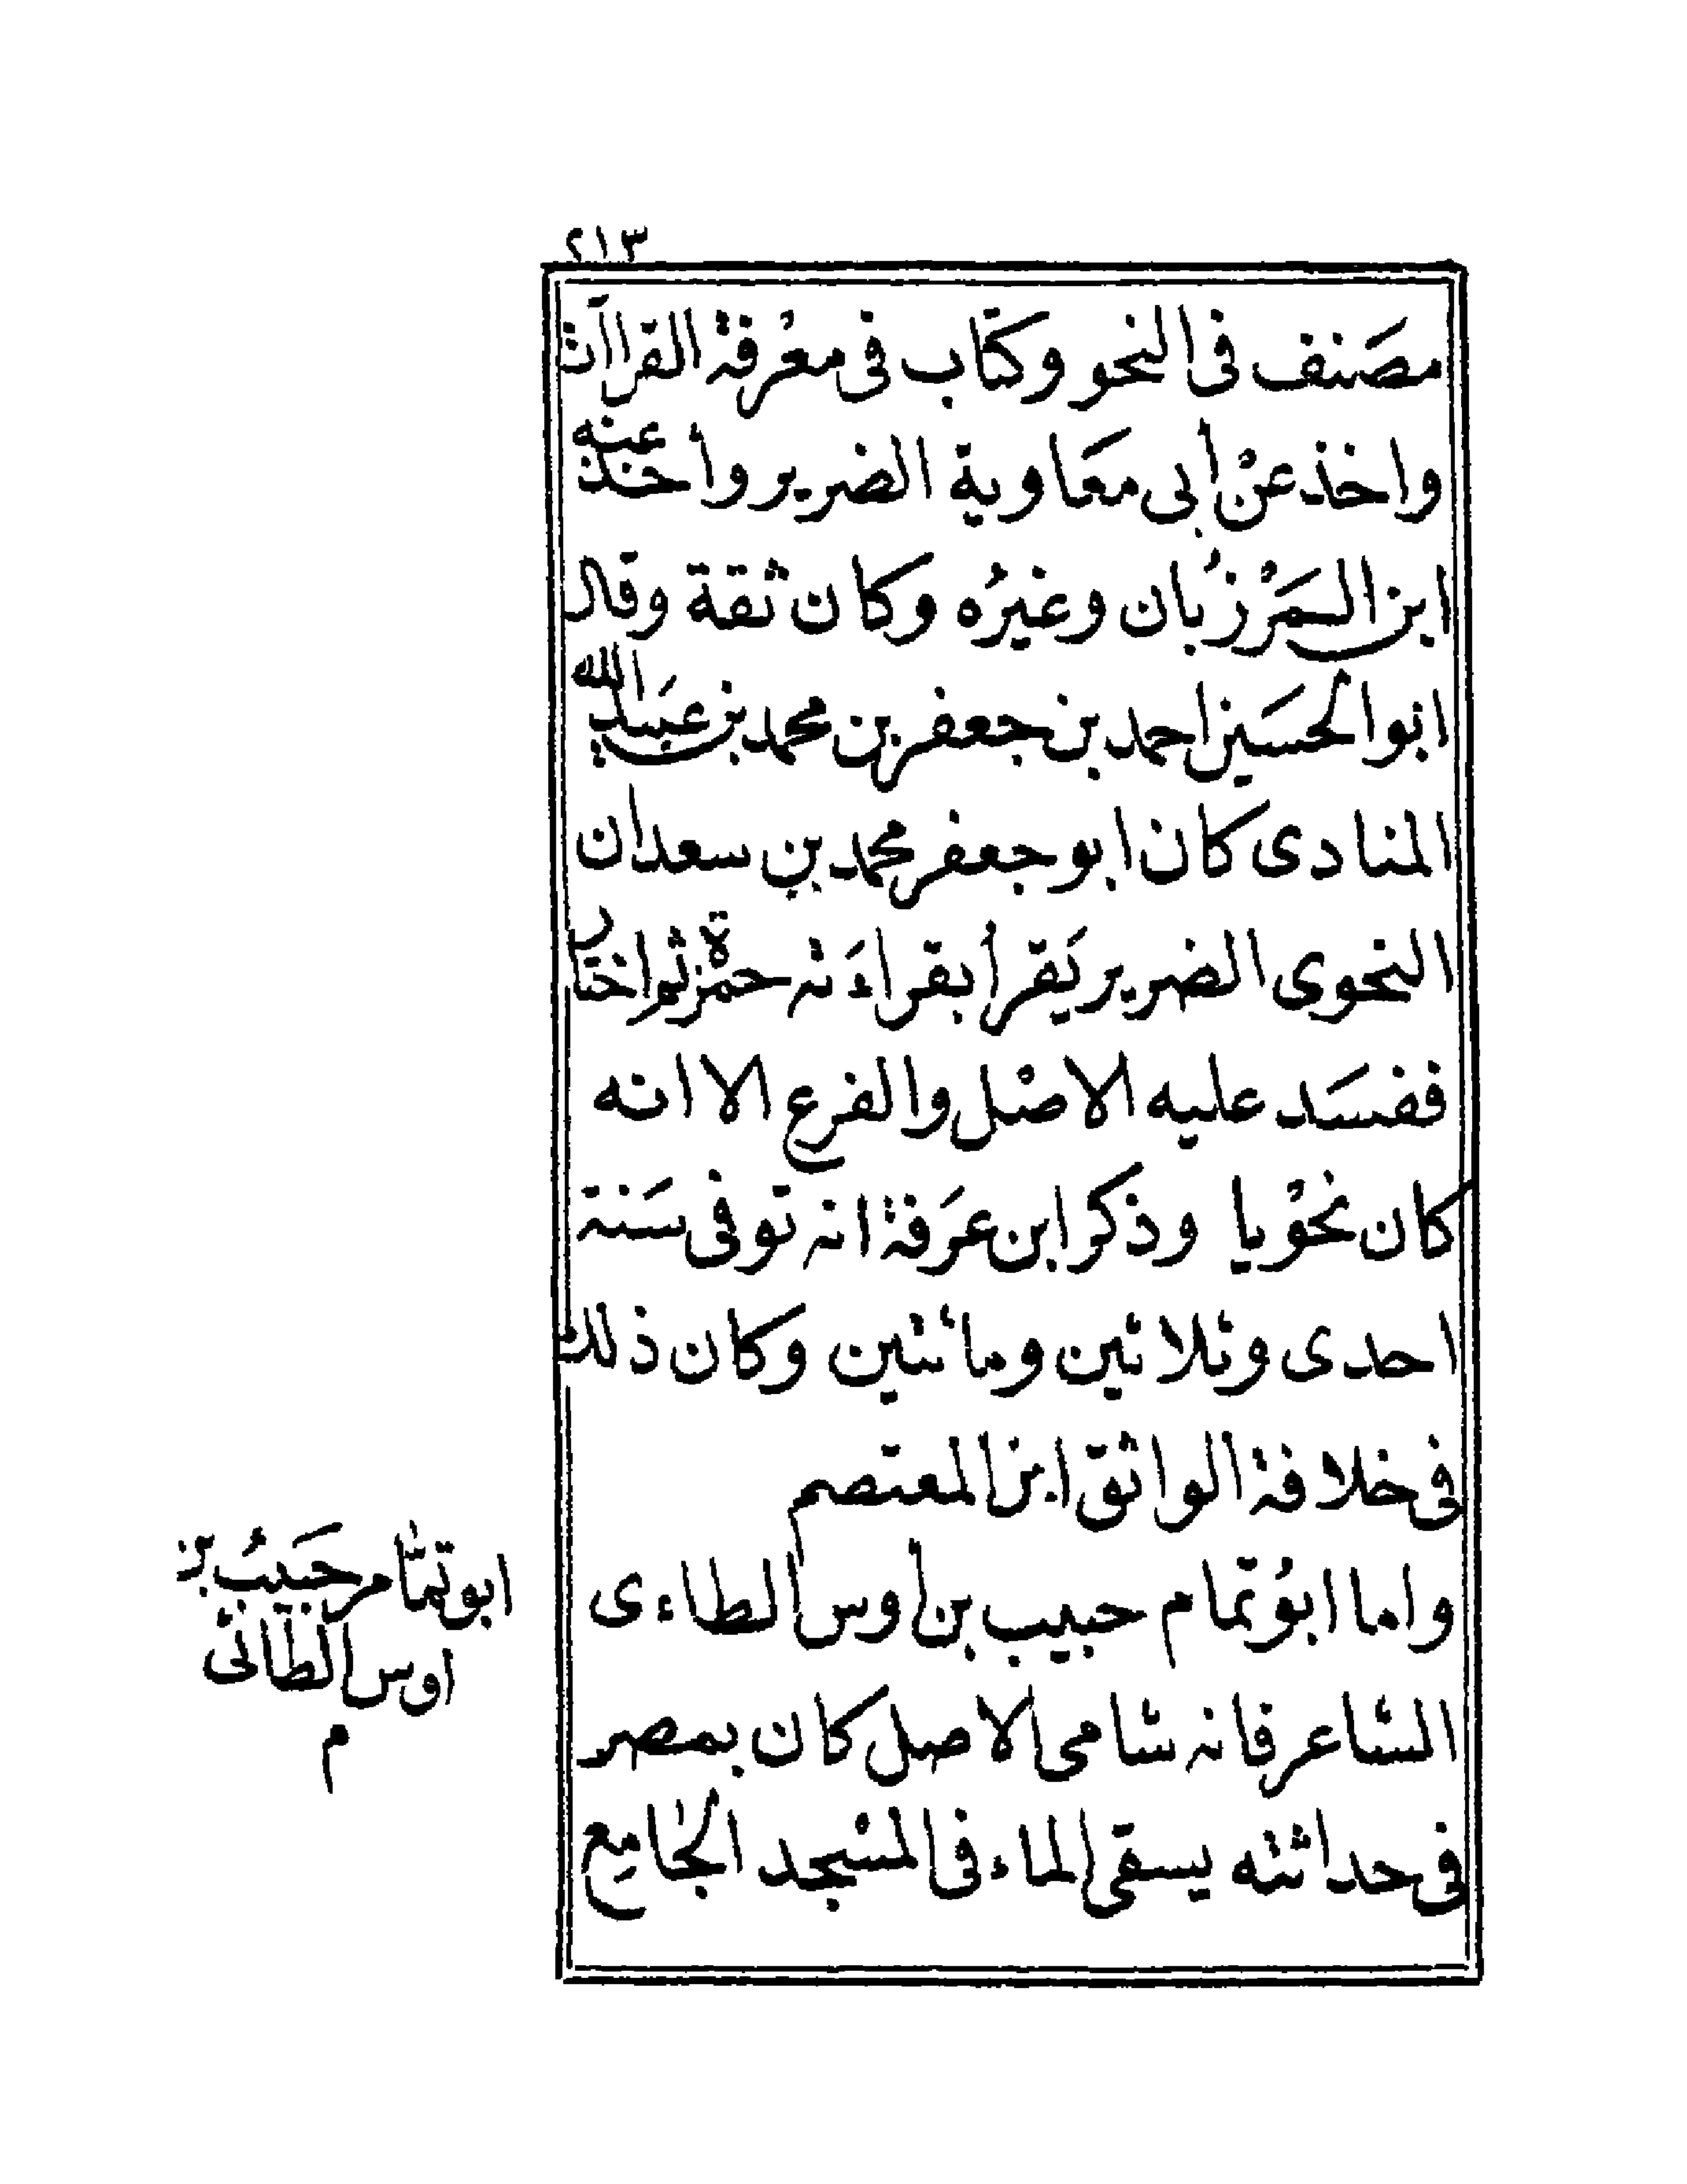 ٢١٣
مصَنف فى النحو وكتاب فى معْرفة القراآت
واخذ عنْ أبى معَاوية الضرير وأخذ عنه
ابن المَرْزُبان وغيرُه وكان ثقة وقال
ابو الحسَين احمد بن جعفر بن محمد بن عبَيد الله
المنادى كان ابو جعفر محمد بن سعدان
النحوى الضرير يَقرأ بقراءَته حمْزة ثم اختار
ففسَد عليه الاصْل والفرع الا انه
كان نحْويا وذكر ابن عرَفة انه توفى سَنة
احدى وثلاثين ومائتين وكان ذلك
فى خلافة الواثق ابن المعتصم
واما ابوُ تمام حبيب بن أوس الطاءى
الشاعر فانه شامى الاصل كان بمصر
فى حداثته يسقى الماء فى المسْجد الجَامِع
ابو تمَّام حَبيبُ بن
اوس الطائى
م